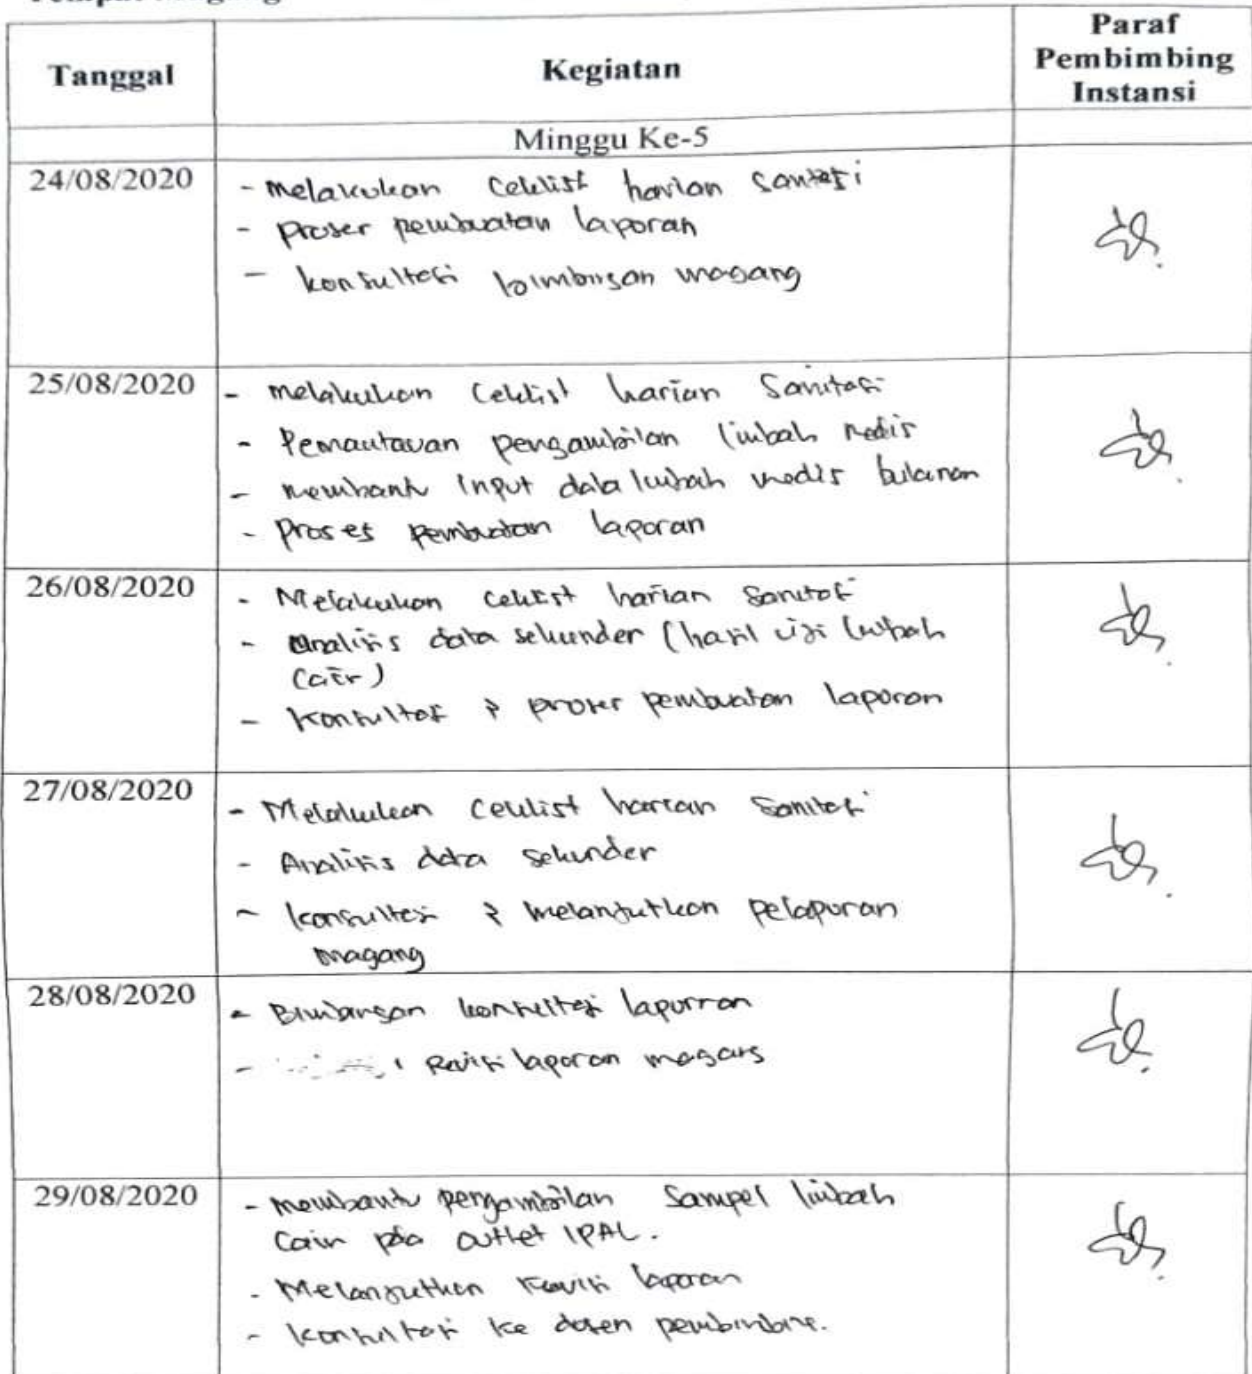 Tanggal
Kegiatan
Paraf
Pembimbing
Instansi
Minggu Ke-5
24/08/2020
- Melakukan Ceklist harian Sanitasi
- Proses pembuatan laporan
- konsultasi bimbingan magang
25/08/2020
- Melakukan Ceklist harian Sanitasi
- Pemantauan pengambilan limbah medis
- membantu Input data limbah medis bulanan
- Proses pembuatan laporan
26/08/2020
- Melakukan Ceklist harian Sanitasi
- Analisis data sekunder (hasil uji limbah
Cair)
- Konsultasi & proses pembuatan laporan
27/08/2020
- Melakukan Ceklist harian Sanitasi
- Analisis data sekunder
- konsultasi & melanjutkan pelaporan
magang
28/08/2020
- Bimbingan konsultasi laporran
- Revisi laporan magang
29/08/2020
- membantu pengambilan Sampel limbah
Cair pda outlet IPAL.
- Melanjutkan Revisi laporan
- konsultasi ke dosen pembimbing.